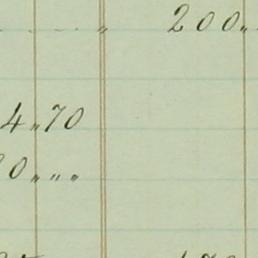 200"
4"70
0"""